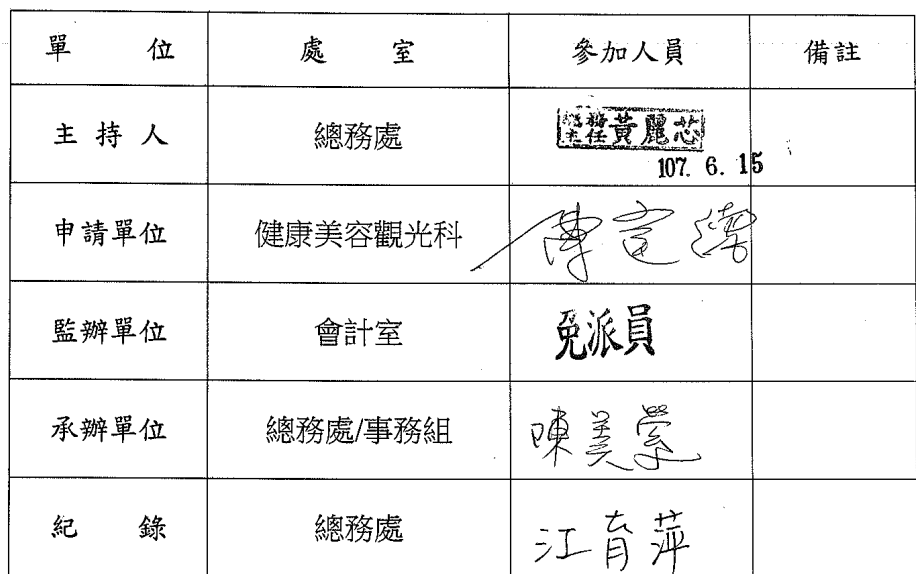 單 位 處 室 參加人員 備註
主持人 總務處 總務主任黃麗芯
107. 6. 15
申請單位 健康美容觀光科 傅宣
監辦單位 會計室 免派員
承辦單位 總務處/事務組 陳美縈
紀 錄 總務處 江育萍